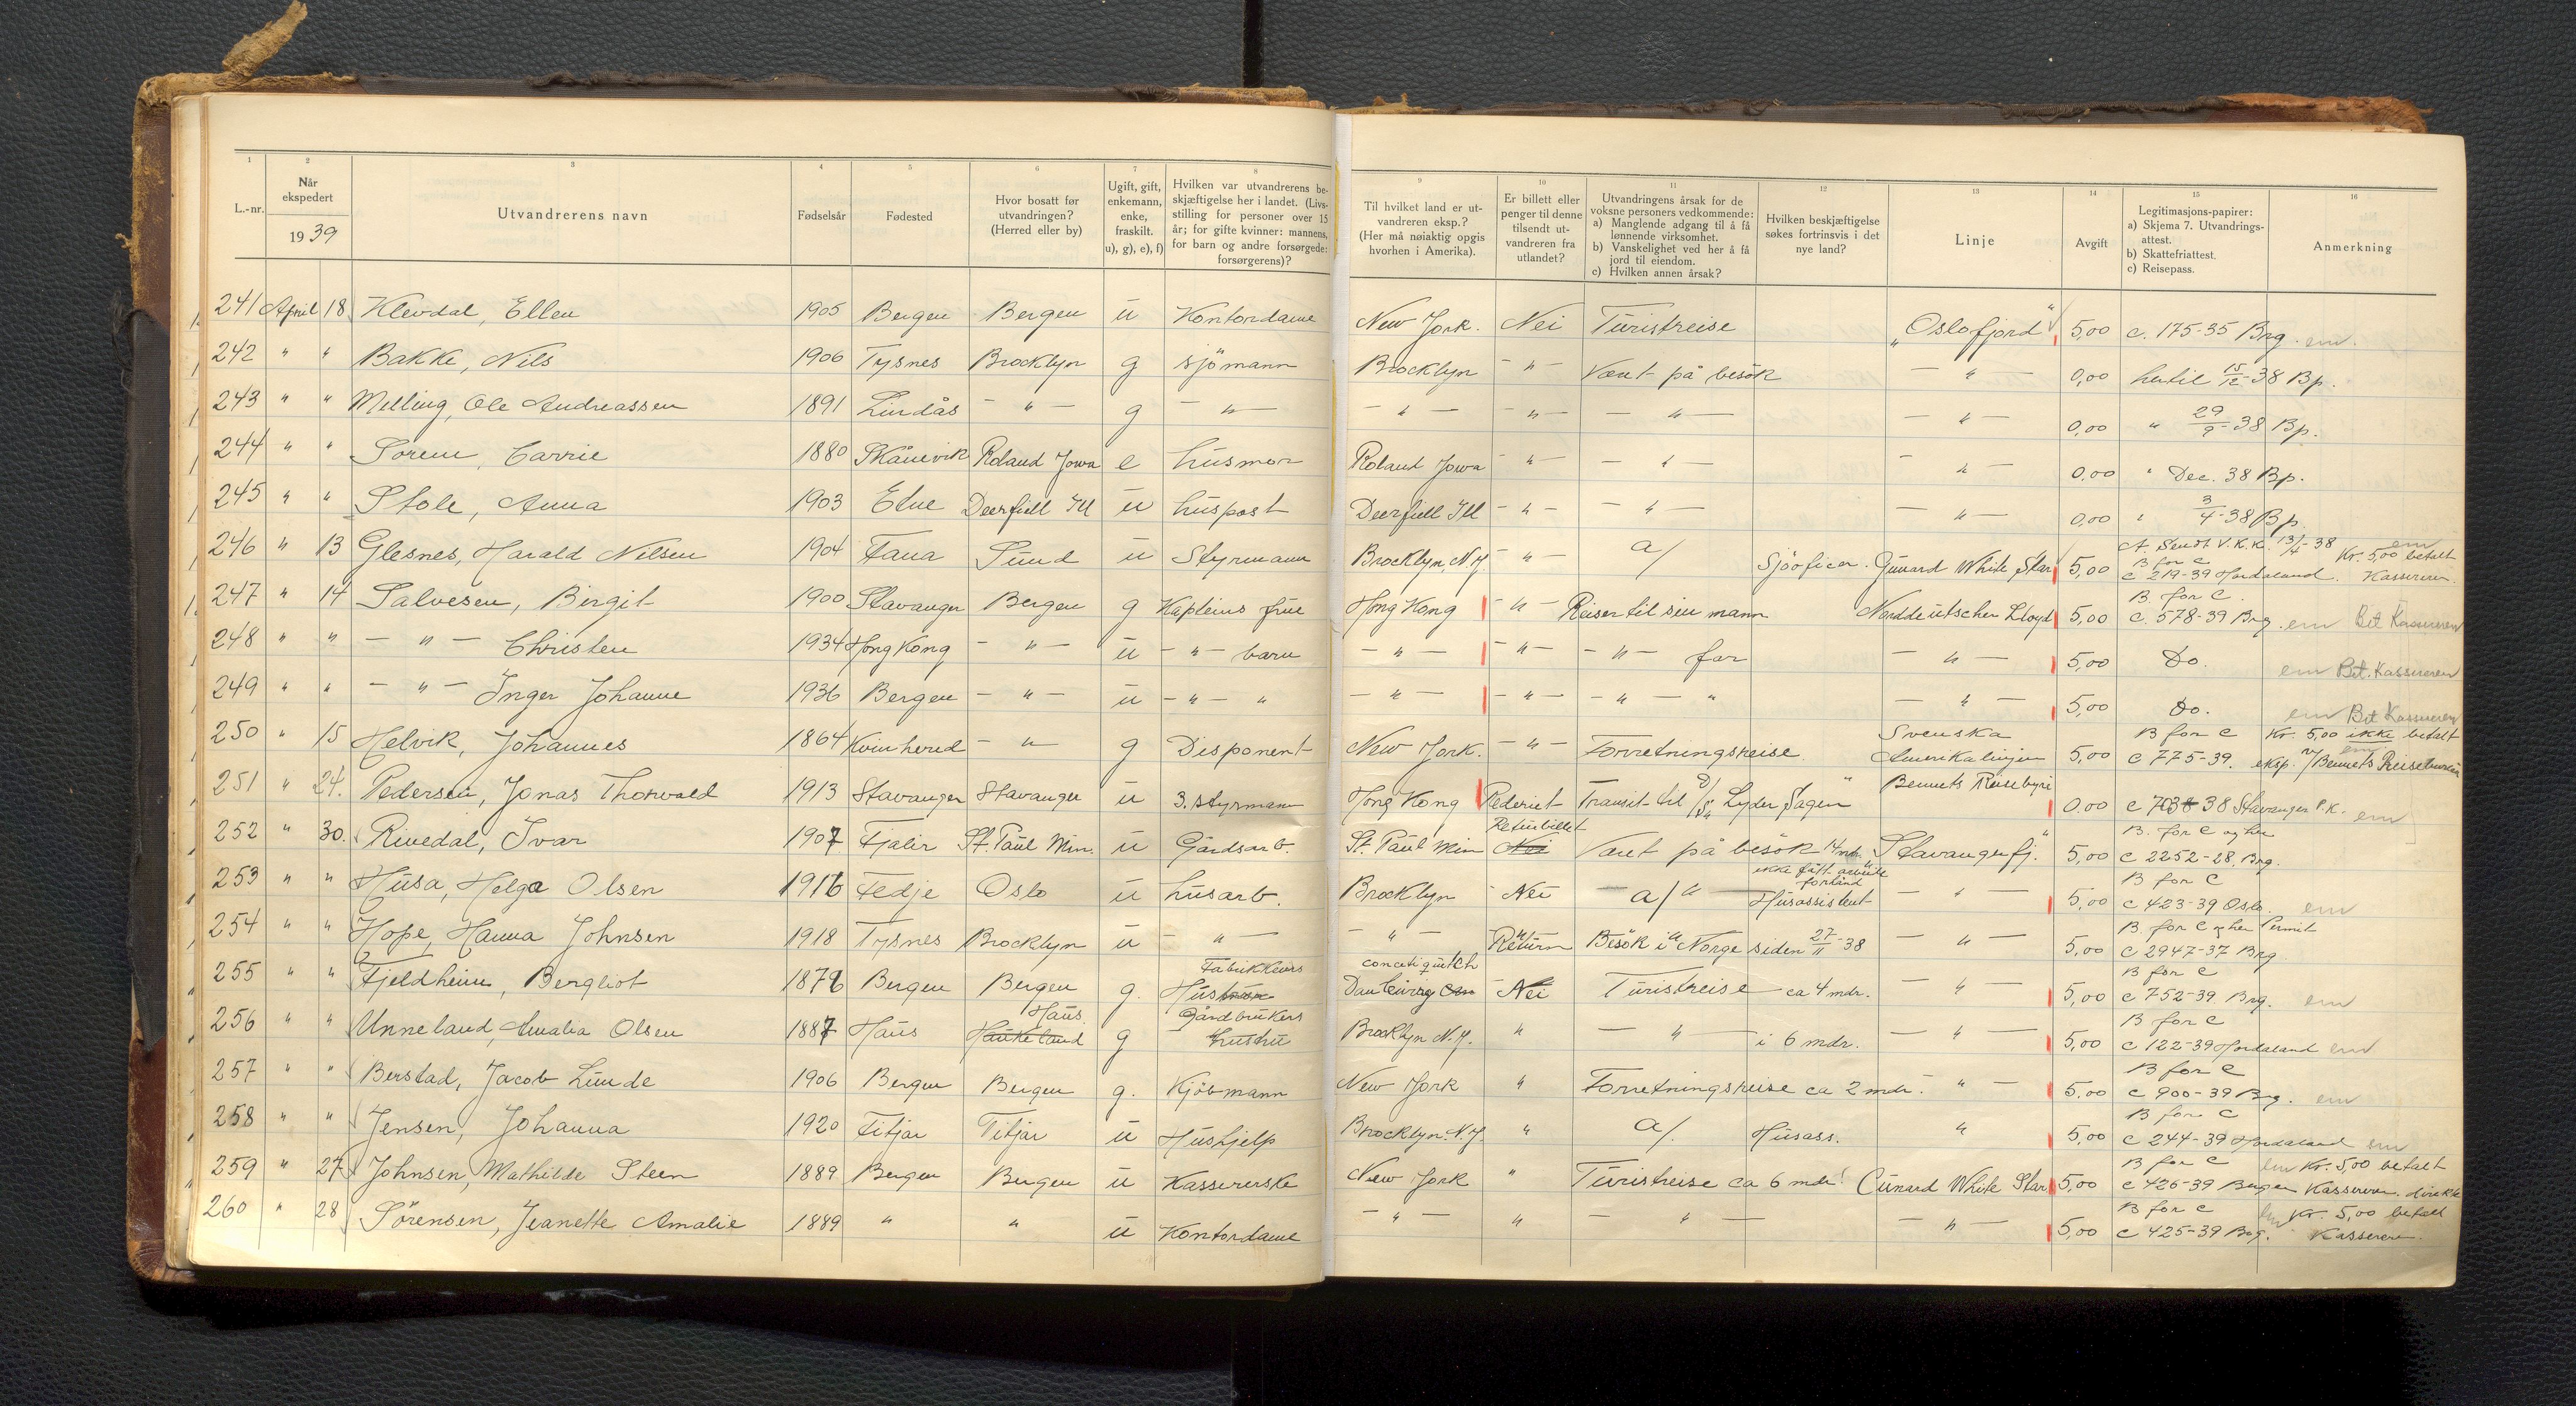 1 2 3 4 5 6 7 8 9 10 11 12 13 14 15 16
L.-nr. Når ekspedert 1939 Utvandrerens navn Fødselsår Fødested Hvor bosatt før utvandringen? (Herred eller by) Ugift, gift, enkemann, enke, fraskilt. u), g), e), f) Hvilken var utvandrerens beskjæftigelse her i landet. (Livsstilling for personer over 15 år; for gifte kvinner: mannens, for barn og andre forsørgede: forsørgerens)? Til hvilket land er utvandreren eksp.? (Her må nøiaktig opgis hvorhen i Amerika). Er billett eller penger til denne tilsendt utvandreren fra utlandet? Utvandringens årsak for de voksne personers vedkommende: a) Manglende adgang til å få lønnende virksomhet. b) Vanskelighet ved her å få jord til eiendom. c) Hvilken annen årsak? Hvilken beskjæftigelse søkes fortrinsvis i det nye land? Linje Avgift Legitimasjons-papirer: a) Skjema 7. Utvandrings-attest. b) Skattefriattest. c) Reisepass. Anmerkning
241 April 18 Klevdal, Ellen 1905 Bergen Bergen u Kontordame New York. Nei Turistreise "Oslofjord" 5,00 c. 175-35 Brg. em.
242 " " Bakke, Nils 1906 Tysnes Brocklyn g sjömann Brocklyn - " - Vært på besök - " - 0,00 hertil 15/12-38 Bp.
243 " " Melling, Ole Andreassen 1891 Lindås - " - g - " - - " - - " - - " - - " - 0,00 " 29/9-38 Bp.
244 " " Sørem, Carrie 1880 Skånevik Roland Jowa e husmor Roland Jowa - " - - " - - " - 0,00 " Dec. 38 Bp.
245 " " Stole, Anna 1903 Etne Deerfiell Ill u huspost Deerfiell Ill - " - - " - - " - 0,00 " 3/4-38 Bp.
246 " 13 Glesnes, Harald Nilsen 1904 Fana Sund u Styrmann Brocklyn, N.Y. - " - a/ Sjöoficer. Cunard White Star 5,00 A. Sendt V.K.K. 13/4-38 B for C c 219-39 Hordaland. em Kr. 5,00 betalt Kassereren.
247 " 14 Salvesen, Birgit 1900 Stavanger Bergen g Kapteins frue Hong Kong - " - Reiser til sin mann Norddeutscher Lloyd 5,00 B. for C. c. 578-39 Brg. em Bet Kassereren
248 " " - " - Christen 1934 Hong Kong - " - u - " - barn - " - - " - - " - far - " - 5,00 Do. em Bet. Kassereren
249 " " - " - Inger Johanne 1936 Bergen - " - u - " - " - " - - " - - " - " - " - 5,00 Do. em Bet Kassereren
250 " 15 Helvik, Johannes 1864 Kvinherred - " - g Disponent New York. - " - Forretningsreise. Svenska Amerikalinjen 5,00 B for C c 775-39. Kr. 5,00 ikke betalt em eksp. v/Bennets Reisebureau
251 " 24. Pedersen, Jonas Thorvald 1913 Stavanger Stavanger u 3. styrmann Hong Kong Rederiet Transit til D/S "Lyder Sagen" Bennets Reisebyrå 0.00 c 703-38 Stavanger P.K. em
252 " 30. Rivedal, Ivar 1907 Fjaler St. Paul Min. u Gårdsarb. St. Paul Min Returbillet Nei Vært på besök 14 mdr. "Stavangerfj." 5,00 B. for C og her c 2252-28, Brg.
253 " " Husa, Helga Olsen 1916 Fedje Oslo u husarb. Brocklyn Nei - a/ " - ikke fått arbeide forhånd Husassistent - " - 5,00 B for C c 423-39 Oslo em
254 " " Hope, Hanna Johnsen 1918 Tysnes Brocklyn u - " - - " - Return Besök i Norge siden 27/11-38 - " - 5,00 B. for C og her Permit c 2947-37 Brg
255 " " Fjeldheim, Bergliot 1876 Bergen Bergen g. Fabrikkeiers Hustrue conectiqutch Danleirry Con Nei Turistreise ca 4 mdr. - " - 5,00 B for C c 752-39 Brg. em
256 " " Unneland, Amalia Olsen 1887 Haus Haus Haukeland g Gårdbrukers hustru Brocklyn N.Y. " - " - i 6 mdr. - " - 5,00 B for C c 122-39 Hordaland em
257 " " Berstad, Jacob Lunde 1906 Bergen Bergen g. Kjöbmann New York " Forretningsreise ca 2 mdr. - " - 5,00 B for C c 900-39 Brg. em
258 " " Jensen, Johanna 1920 Fitjar Fitjar u Hushjelp Brocklyn. N.Y. " a/. Husass. " 5,00 B for C c 244-39 Hordaland em
259 " 27 Johnsen, Mathilde Steen 1889 Bergen Bergen u Kassererske New York " Turistreise ca 6 mdr. Cunard White Star 5,00 B for C c 426-39 Bergen em Kr. 5,00 betalt Kassereren. direkte
260 " 28 Sörensen, Jeanette Amalie 1889 " " u Kontordame - " - " - " - - " - 5,00 B for C c 425-39 Brg. em Kr. 5,00 betalt Kassereren.